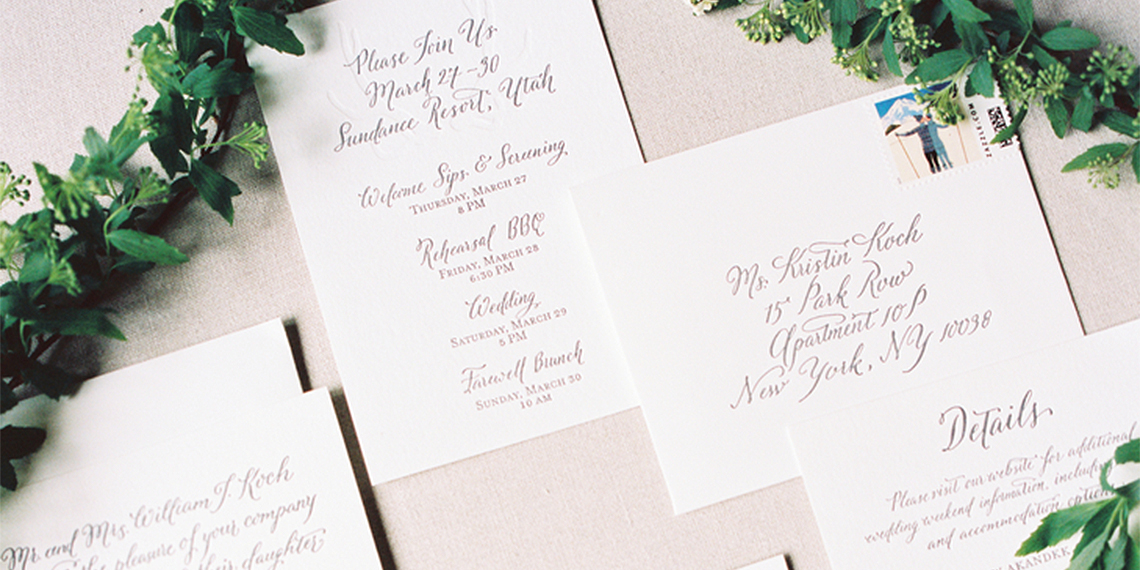 Please Join Us
March 27-30
Sundance Resort, Utah
Welcome Sips & Screening
Thursday, March 27
8 PM
Rehearsal BBQ
Friday, March 28
6:30 PM
Wedding
Saturday, March 29
5 PM
Farewell Brunch
Sunday, March 30
10 AM
ZAZZLE.COM
Ms. Kristin Koch
15 Park Row
Apartment 10P
New York, NY 10038
Details
Please visit our website for additional
wedding weekend information, including
and accommodation options
Mr. and Mrs. William J. Koch
the pleasure of your company
their daughter